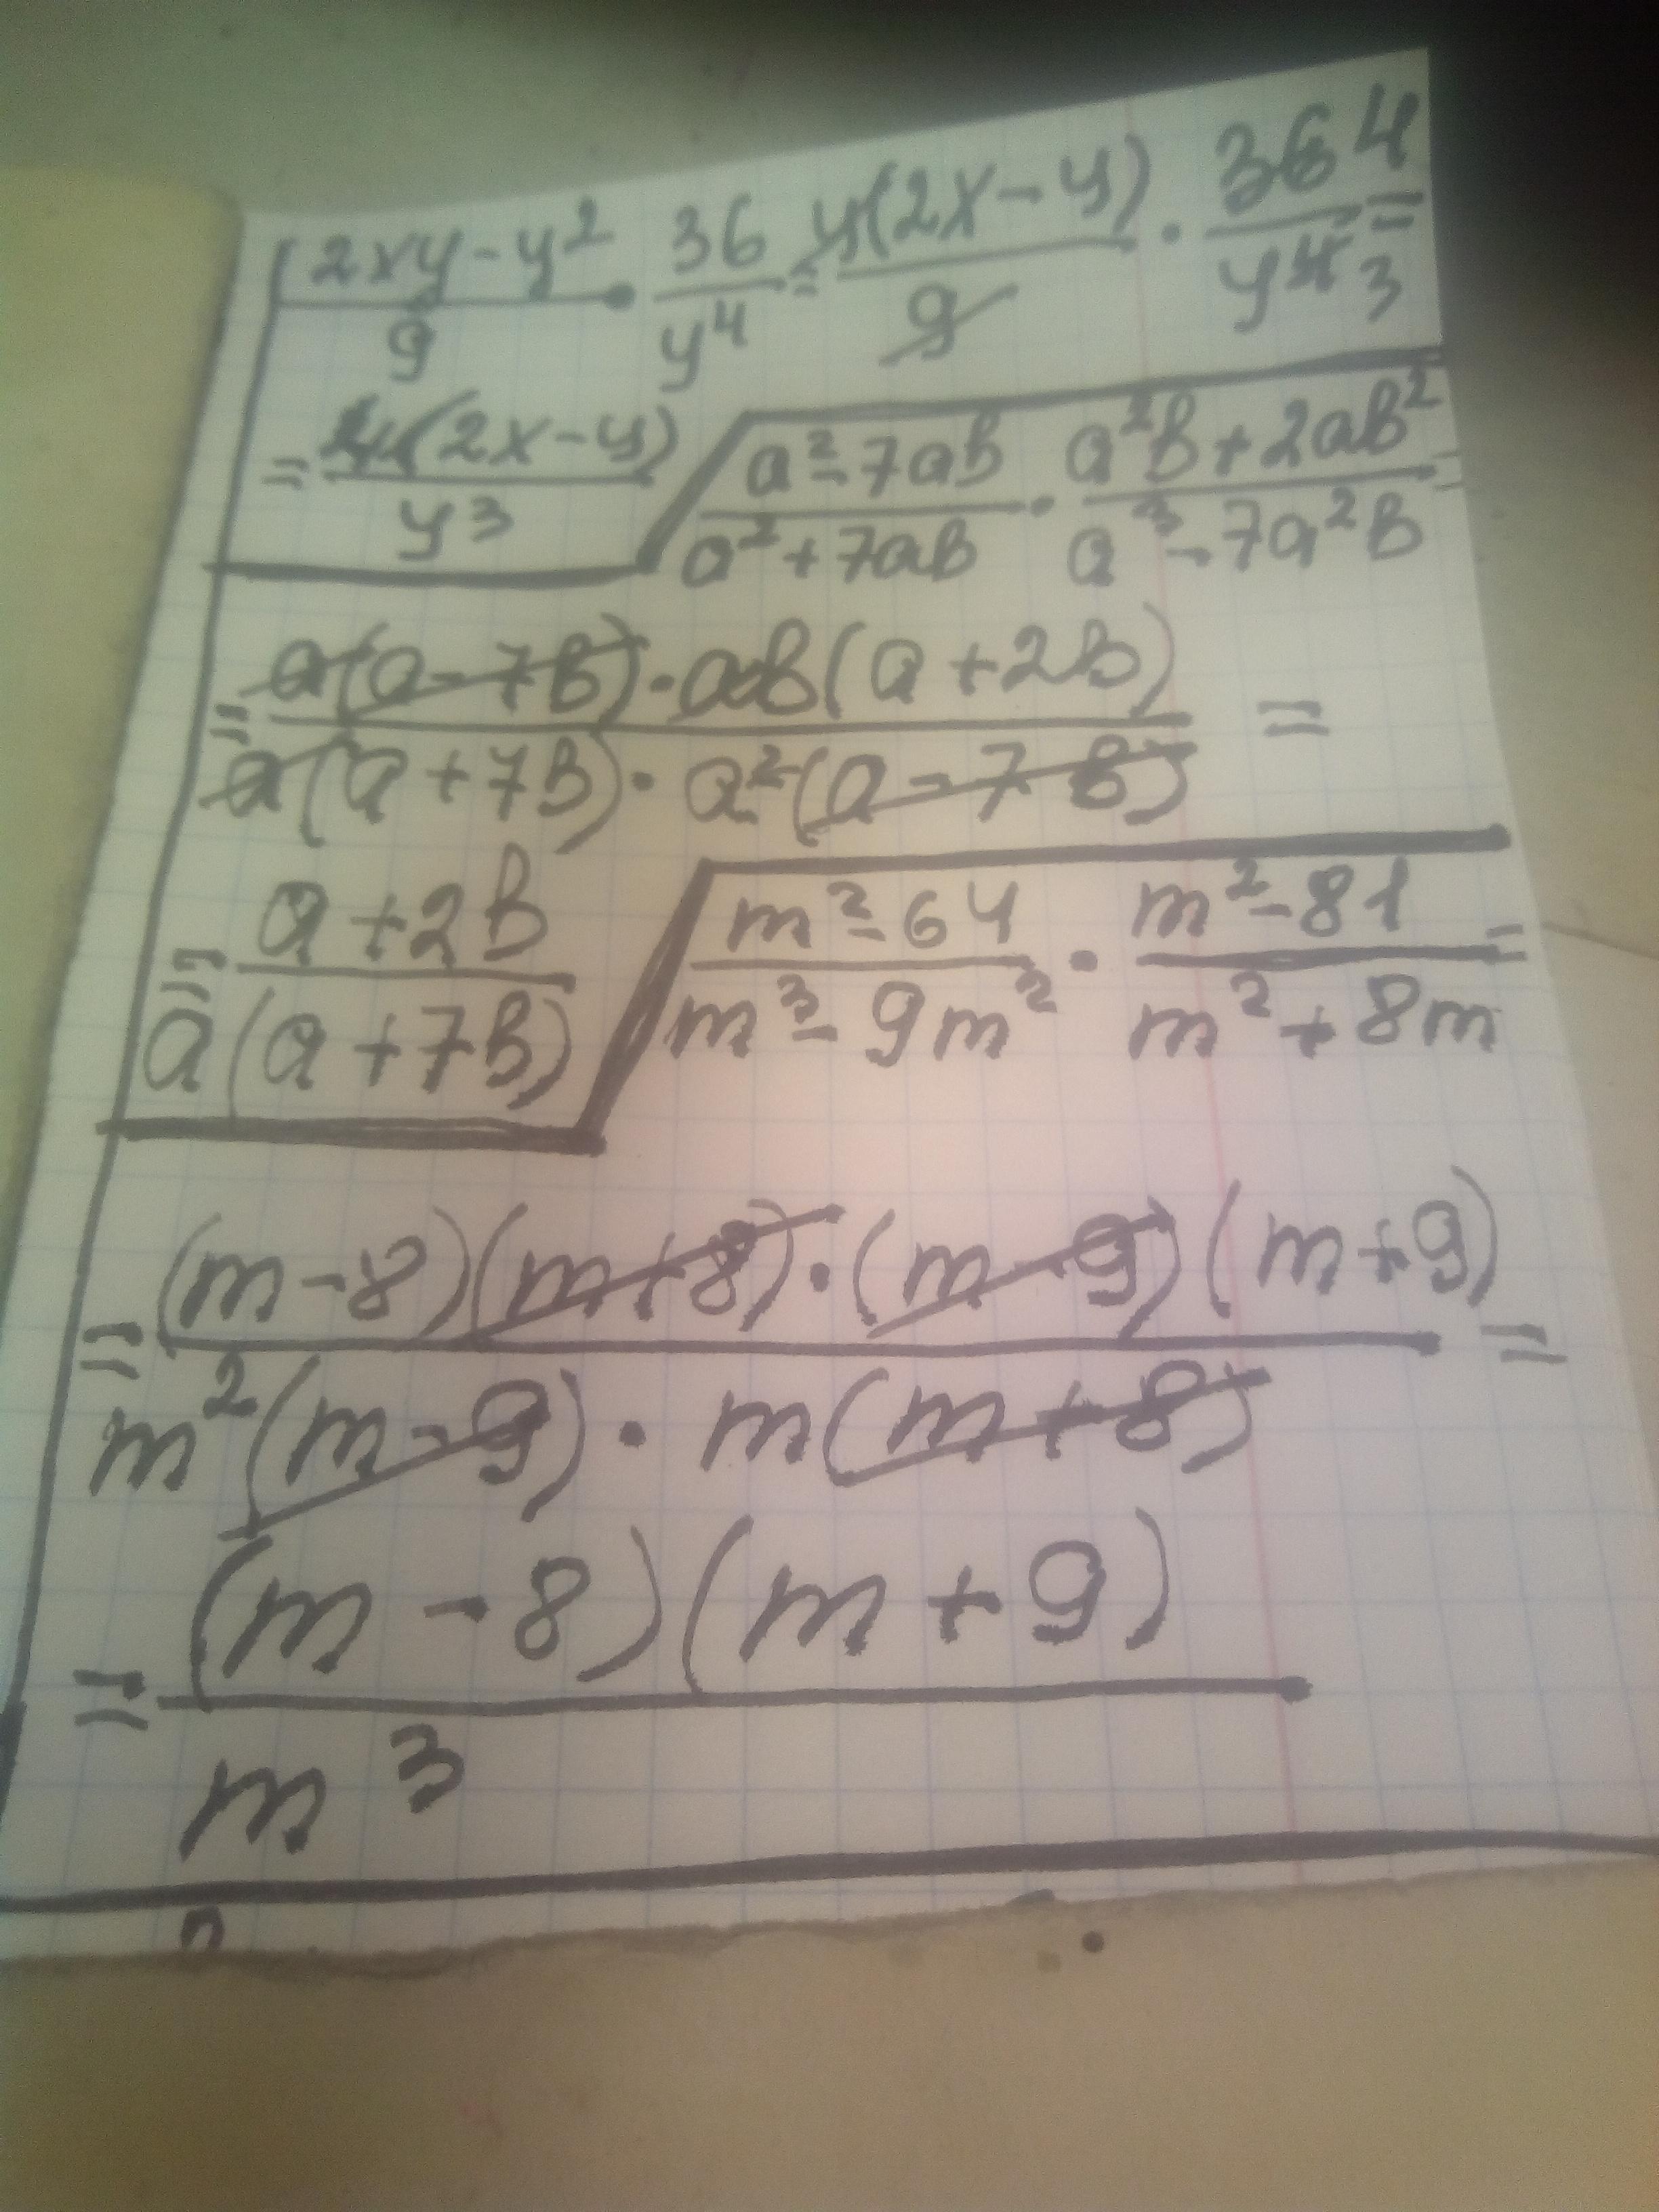 (2xy - y²)/9 · 36/y⁴ = y(2x - y)/9 · 36 4/y⁴ 3 =
= 4(2x - y)/y³
(a² - 7ab)/(a² + 7ab) · (a²b + 2ab²)/(a³ - 7a²b) =
= a(a - 7b) · ab(a + 2b)/a(a + 7b) · a²(a - 7b) =
= a + 2b/a(a + 7b)
(m² - 64)/(m³ - 9m²) · (m² - 81)/(m² + 8m) =
= (m - 8)(m + 8) · (m - 9)(m + 9)/m²(m - 9) · m(m + 8) =
= (m - 8)(m + 9)/m³